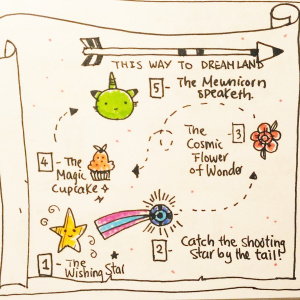 THIS WAY TO DREAMLAND
5 - The Mewnicorn
speaketh.
The
Cosmic
Flower
of Wonder
3
4 - The
Magic
Cupcake
1 - The
Wishing Star
2 - Catch the shooting
Star by the tail!